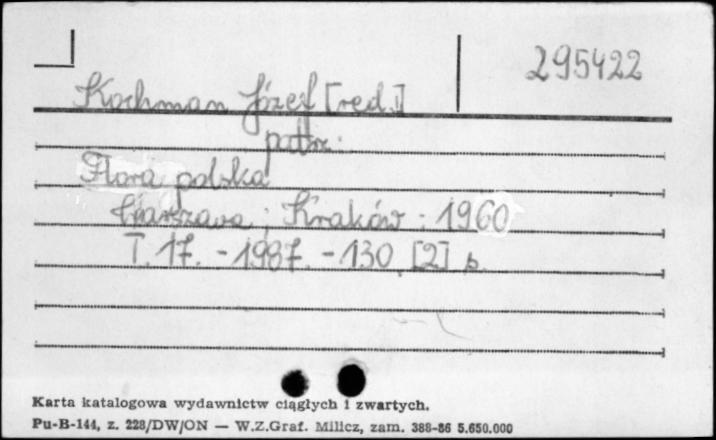 295422
Kochman Józef [red.]
patrz:
Flora polska
Warszawa ; Kraków : 1960
T. 17. - 1987. - 130, [2] s.
Karta katalogowa wydawnictw ciągłych i zwartych.
Pu-B-144, z. 228/DW/ON — W.Z.Graf. Milicz, zam. 388-86 5.650.000